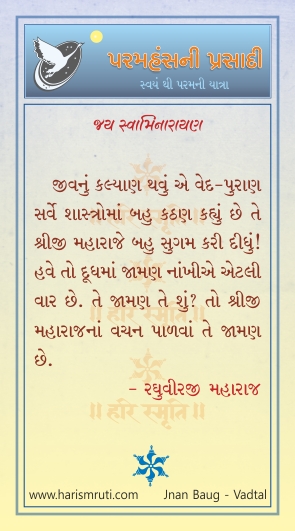 પરમહંસની પ્રસાદી
સ્વયં થી પરમની યાત્રા
જય સ્વામિનારાયણ
જીવનું કલ્યાણ થવું એ વેદ-પુરાણ
સર્વે શાસ્ત્રોમાં બહુ કઠણ કહ્યું છે તે
શ્રીજી મહારાજે બહુ સુગમ કરી દીધું!
હવે તો દૂધમાં જામણ નાંખીએ એટલી
વાર છે. તે જામણ તે શું? તો શ્રીજી
મહારાજનાં વચન પાળવાં તે જામણ
છે.
- રઘુવીરજી મહારાજ
॥ हरि स्मृति ॥
॥ हरि स्मृति ॥
www.harismruti.com Jnan Baug - Vadtal